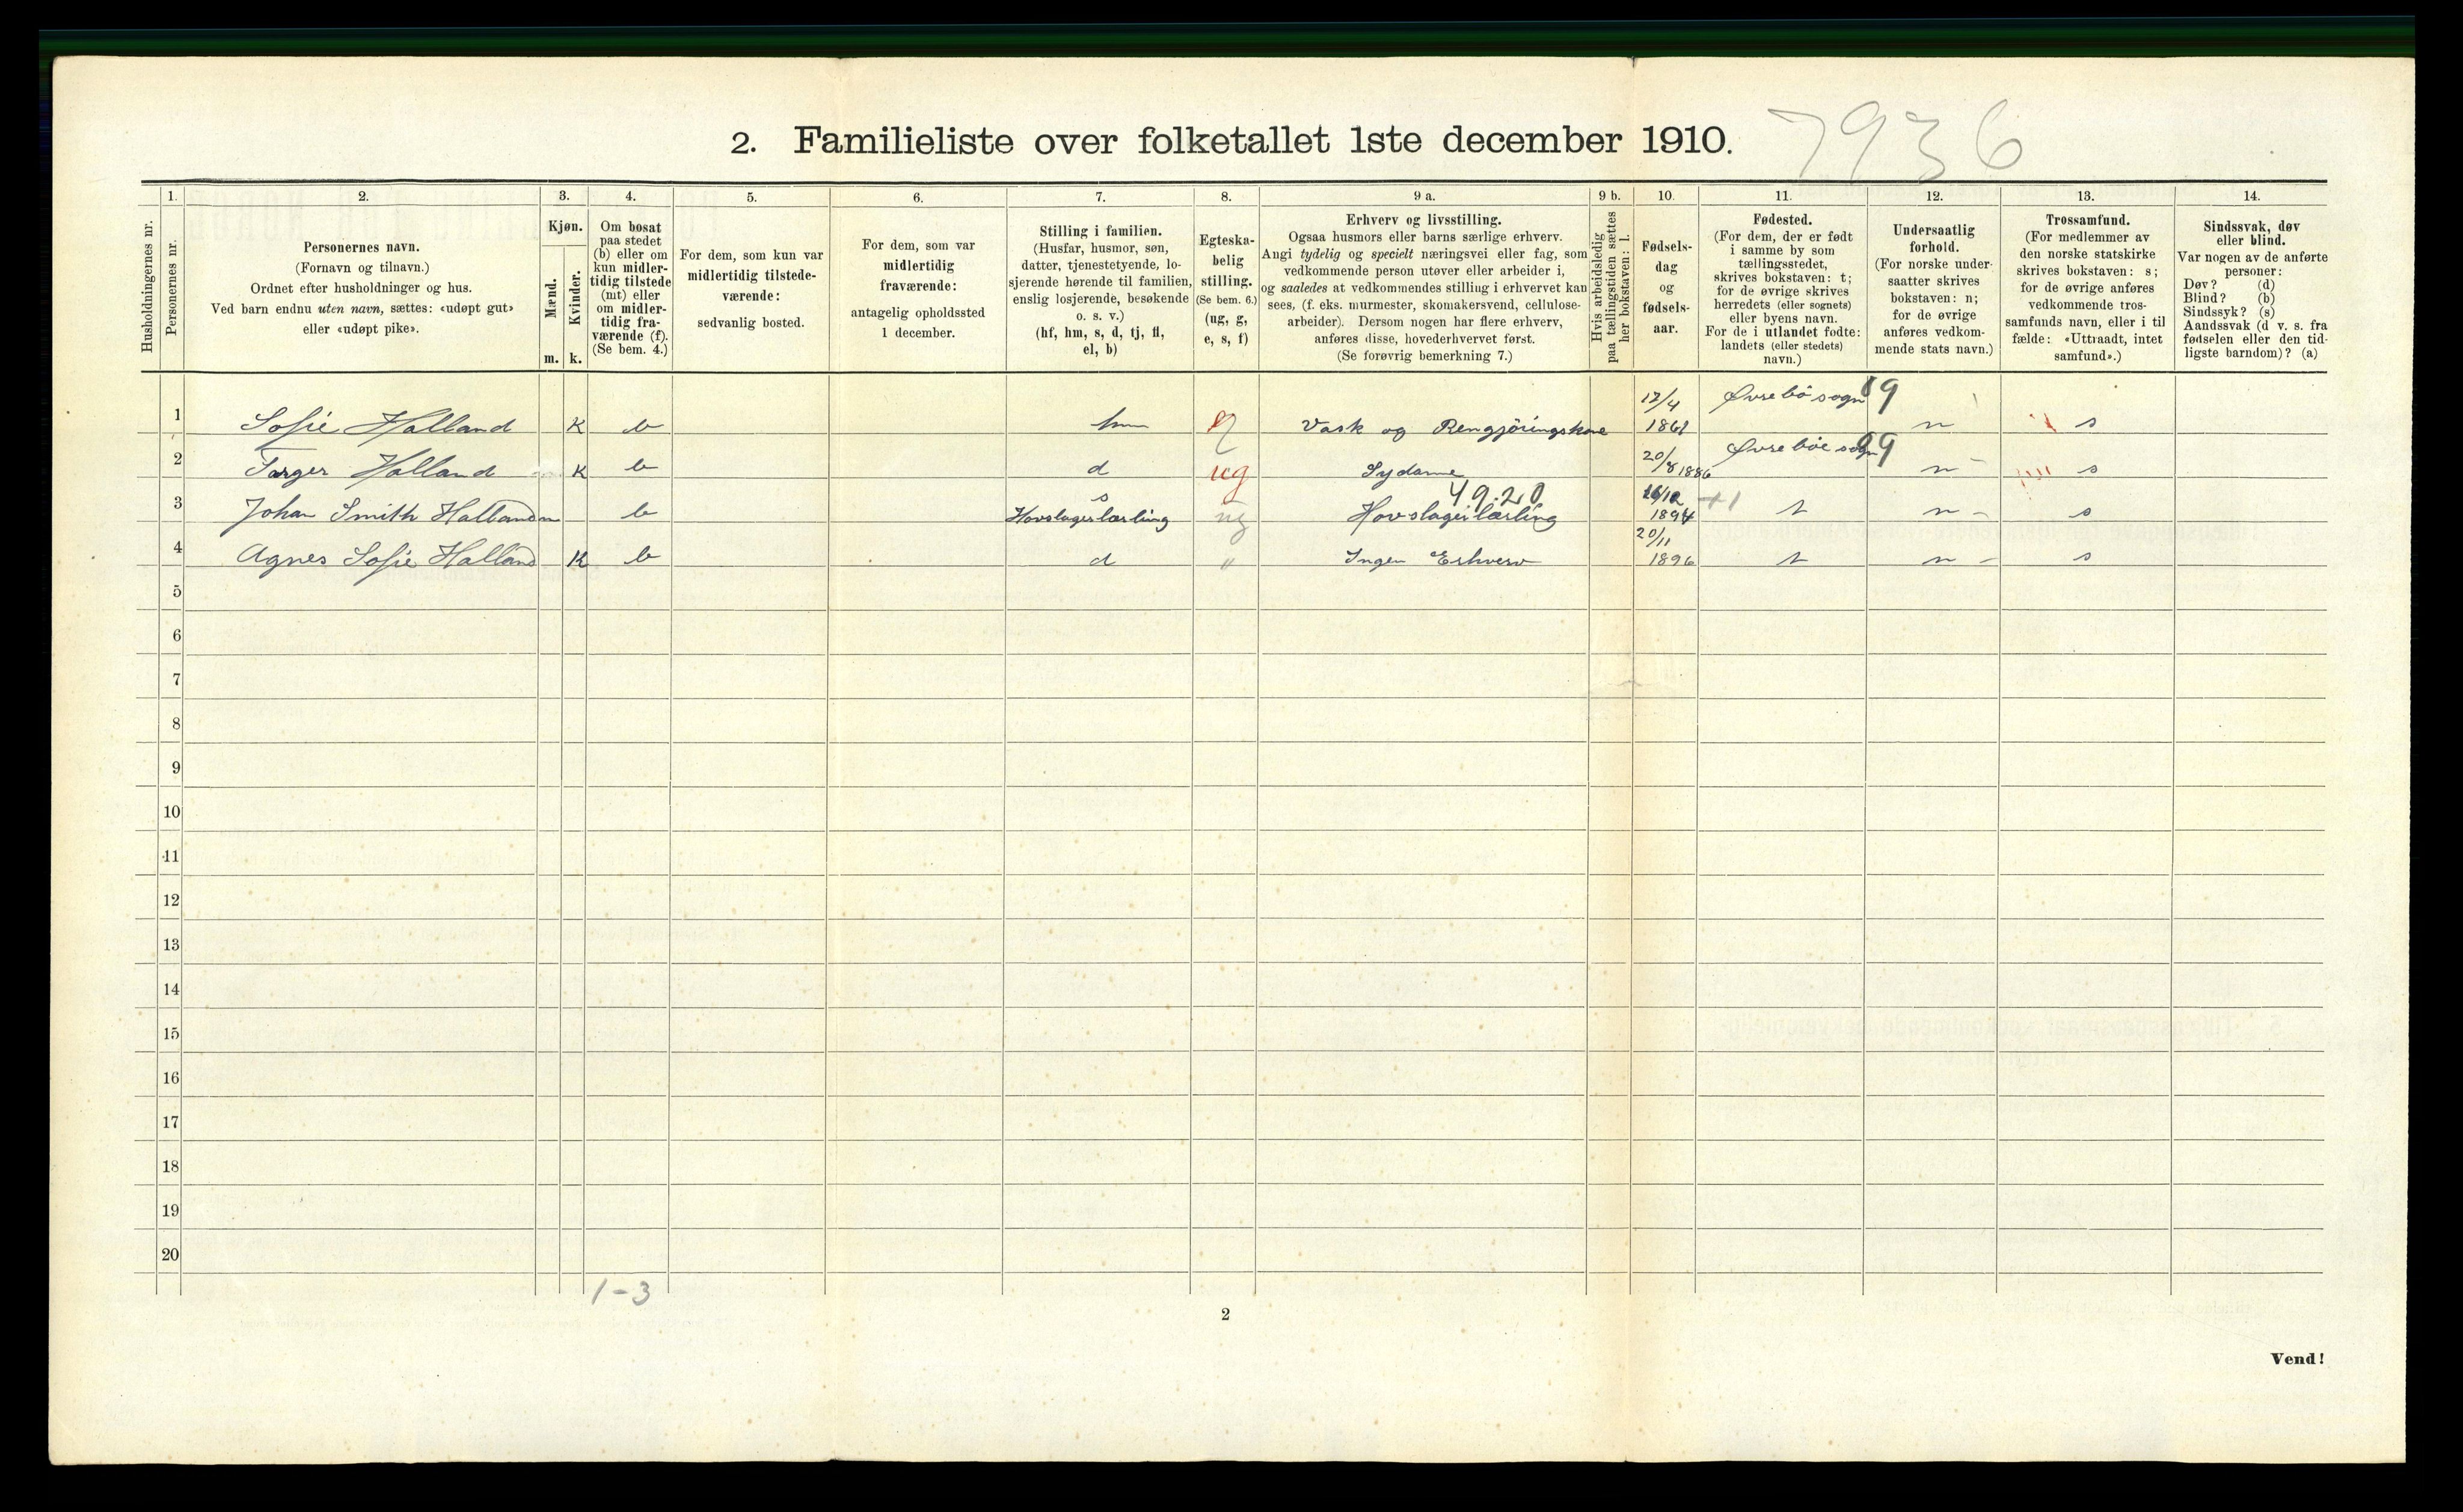 7936
2. Familieliste over folketallet 1ste december 1910.
1. 2. 3. 4. 5. 6. 7. 8. 9 a. 9 b. 10. 11. 12. 13. 14.
Husholdningernes nr.
Personernes nr.
Personernes navn.
(Fornavn og tilnavn.)
Ordnet efter husholdninger og hus.
Ved barn endnu uten navn, sættes: «udøpt gut»
eller «udøpt pike».
Kjøn.
Mænd.
m.
Kvinder.
k.
Om bosat
paa stedet
(b) eller om
kun midler-
tidig tilstede
(mt) eller
om midler-
tidig fra-
værende (f).
(Se bem. 4.)
For dem, som kun var
midlertidig tilstede-
værende:
sedvanlig bosted.
For dem, som var
midlertidig
fraværende:
antagelig opholdssted
1 december.
Stilling i familien.
(Husfar, husmor, søn,
datter, tjenestetyende, lo-
sjerende hørende til familien,
enslig losjerende, besøkende
o. s. v.)
(hf, hm, s, d, tj, fl,
el, b)
Egteska-
belig
stilling.
(Se bem. 6.)
(ug, g,
e, s, f)
Erhverv og livsstilling.
Ogsaa husmors eller barns særlige erhverv.
Angi tydelig og specielt næringsvei eller fag, som
vedkommende person utøver eller arbeider i,
og saaledes at vedkommendes stilling i erhvervet kan
sees, (f. eks. murmester, skomakersvend, cellulose-
arbeider). Dersom nogen har flere erhverv,
anføres disse, hovederhvervet først.
(Se forøvrig bemerkning 7.)
Hvis arbeidsledig
paa tællingstiden sættes
her bokstaven: l.
Fødsels-
dag
og
fødsels-
aar.
Fødested.
(For dem, der er født
i samme by som
tællingsstedet,
skrives bokstaven: t;
for de øvrige skrives
herredets (eller sognets)
eller byens navn.
For de i utlandet fødte:
landets (eller stedets)
navn.)
Undersaatlig
forhold.
(For norske under-
saatter skrives
bokstaven: n;
for de øvrige
anføres vedkom-
mende stats navn.)
Trossamfund.
(For medlemmer av
den norske statskirke
skrives bokstaven: s;
for de øvrige anføres
vedkommende tros-
samfunds navn, eller i til
fælde: «Uttraadt, intet
samfund».)
Sindssvak, døv
eller blind.
Var nogen av de anførte
personer:
Døv? (d)
Blind? (b)
Sindssyk? (s)
Aandssvak (d v. s. fra
fødselen eller den tid-
ligste barndom)? (a)
1 Sofie Holland K b hm Vask og Rengjöringskone 12/4 1861 Øvrebö sogn n s
2 Targer Holland K b d ug Sydame 20/8 1886 Øvreböe sogn 9 n s
49.20
3 Johan Smith Halland m b s Hovslagerlærling ug Hovslagerlærling 1894 +1 t n s
4 Agnes Sofie Halland K b d " Ingen Erhverv 20/11 1896 t n s
5
6
7
8
9
10
11
12
13
14
15
16
17
18
19
20
1-3
2
Vend!